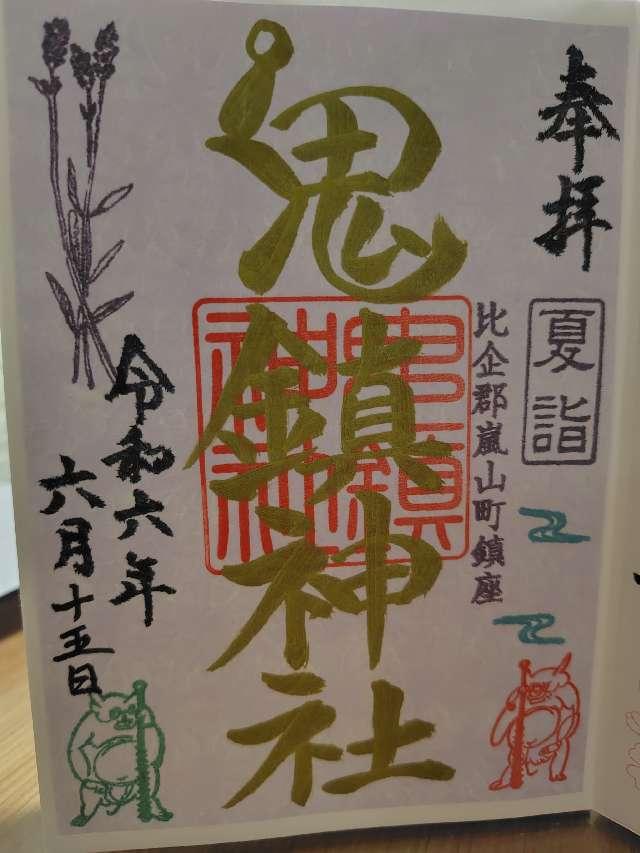 奉拝
夏詣
比企郡嵐山町鎮座
鬼鎮神社
令和六年
六月十五日